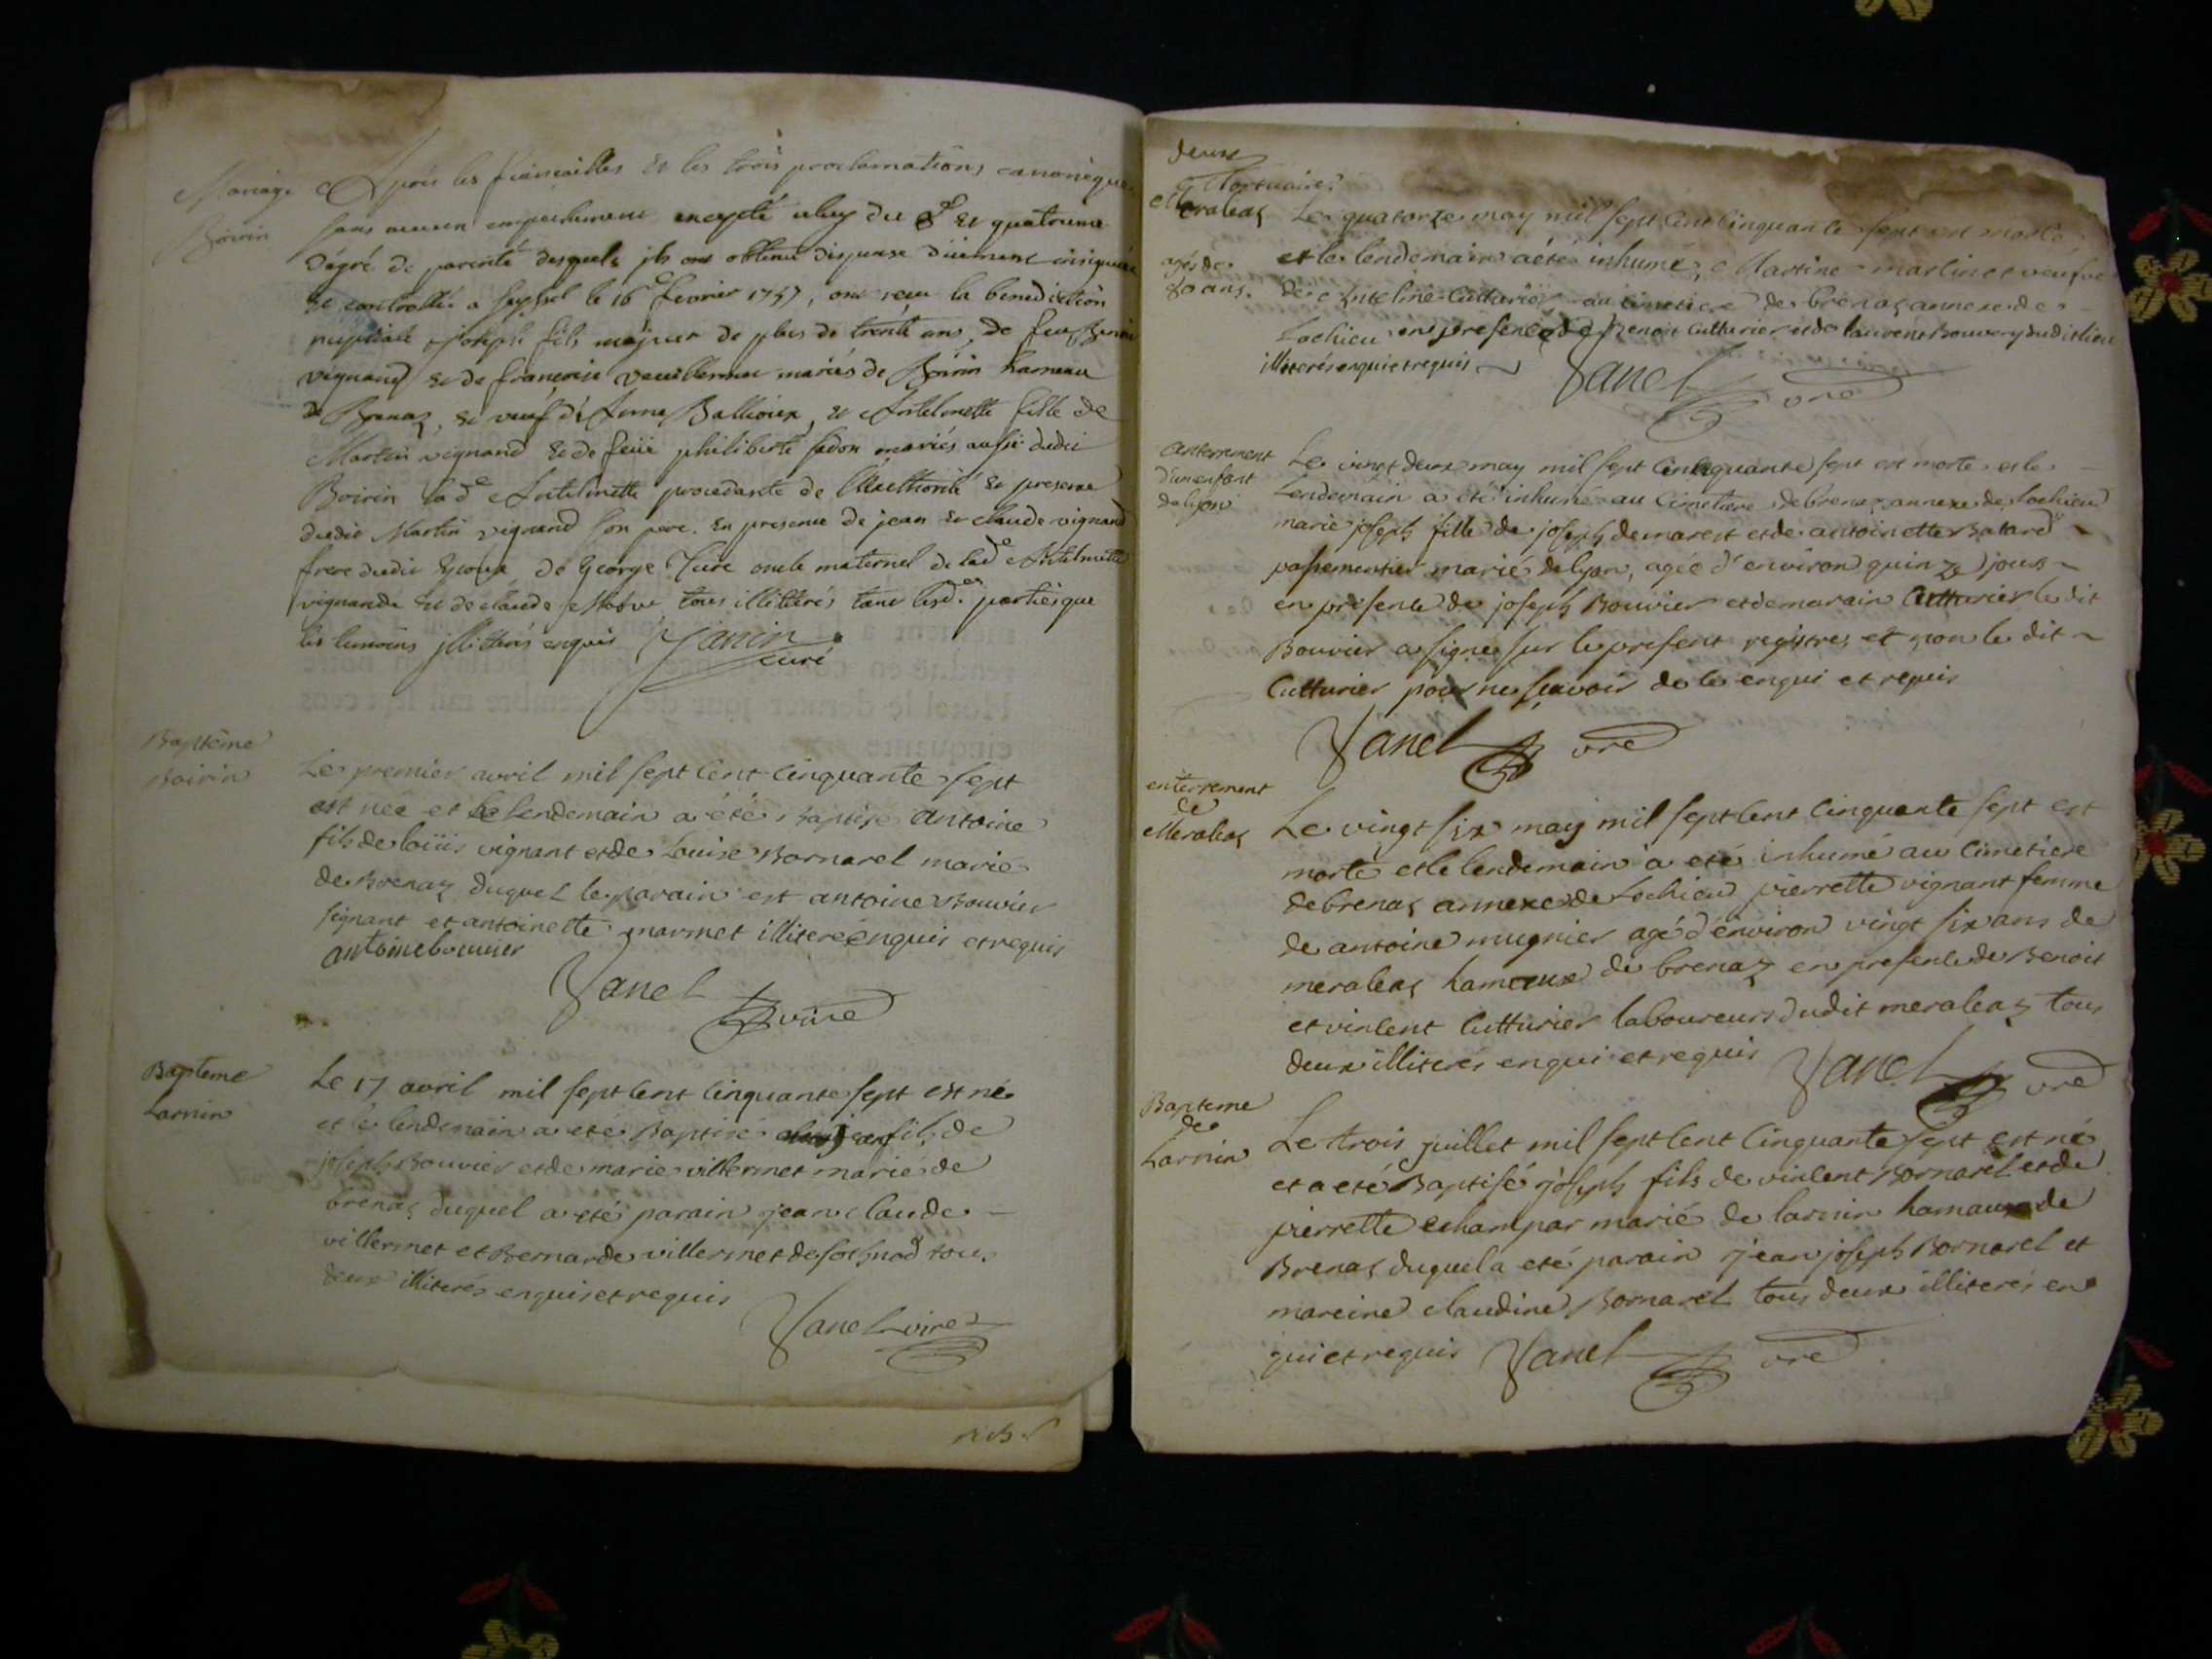 Mariage
Boirin
Après les fiancailles et les trois proclamations canonique
sans aucun empechement excepté celuy du 3e et quatrieme
dégré de parenté desquels jls ont obtenu dispense düement insinuée
et controllée a seyssel le 16e fevrier 1757, ont reçu la benediction
nuptiale joseph fils majeur de plus de trente ans, de feu Benoit
vignand et de francoise veuillermet mariés de Boirin hameau
de Brenaz, et veuf de Anne Ballioux, et Antelmette fille de
Martin vignand et de feüe philiberte fadon mariés aussi dudit
Boirin la de Antelmette procedante de l'Authorité et presence
dudit Martin vignand son pere. En presence de jean et claude vignand
frere dudit Epoux de George Cure oncle maternel de lade Antelmette
vignande et de claude tous illitterés tant lesd.es parties que
les temoins jllitterés enquis Janin
curé
Baptême
Boirin
Le premier avril mil sept cent cinquante sept
est née et le lendemain a été baptisé antoine
fils de loüis vignant et de Louise Bornarel marié
de Brenaz duquel le parain est antoine Bouvier
signant et antoinette marmet illiteré enquis et requis
antoine bouuier
Janel
vire
Bapteme
Larnin
Le 17 avril mil sept cent cinquante sept est né
et le lendemain a eté Baptisé fils de
joseph Bouvier et de marie villermet marié de
brenaz duquel a eté parain jean claude
villermet et Bernarde villermet de sothnod tous
deux illiterés enquis et requis
Janel vire
deux
Mortuaires
Meraleaz
agée de
80 ans.
Le quatorze may mil sept cent cinquante sept est morte
et le lendemain a été inhumé, Martine martinet veufve
de Antelme Cutturier au cimetiere de brenaz annexe de
Lochieu en presence de Benoit Cutturier et de laurent Bouvery dudit lieu
illiterés enquis et requis Janel
vre
anterrement
d'un enfant
de lyon
Le vingt deux may mil sept cinquante sept est morte et le
Lendemain a été inhumé au Cimetiere de brenaz annexe de Lochieu
marie joseph fille de joseph demarest et de antoinette Batard
passementier marié de lyon, agée d'environ quinze jours
en presence de joseph Bouvier et de marain Cutturier le dit
Bouvier a signe sur le present registre, et non le dit
Cutturier pour ne sçavoir de ce enqui et requis
Janel vre
enterrement
de
Meraleaz
Le vingt six may mil sept cent cinquante sept est
morte et le lendemain a eté inhumé au Cimetiere
de brenaz annexe de Lochieu pierrette vignant femme
de antoine mugnier agé d'environ vingt six ans de
meraleaz hameaux de brenaz en presence de Benoit
et vincent Cutturier laboureurs dudit meraleaz tous
deux illiterés enqui et requis Janel vre
Bapteme
de
Larnin
Le trois juillet mil sept cent Cinquante sept est né
et a eté Baptisé joseph fils de vincent Bornarel et de
pierrette echampar marié de larnin hamaux de
Brenaz duquel a eté parain jean joseph Bornarel et
mareine claudine Bornarel tous deux illiterés en
qui et requis Janel vre